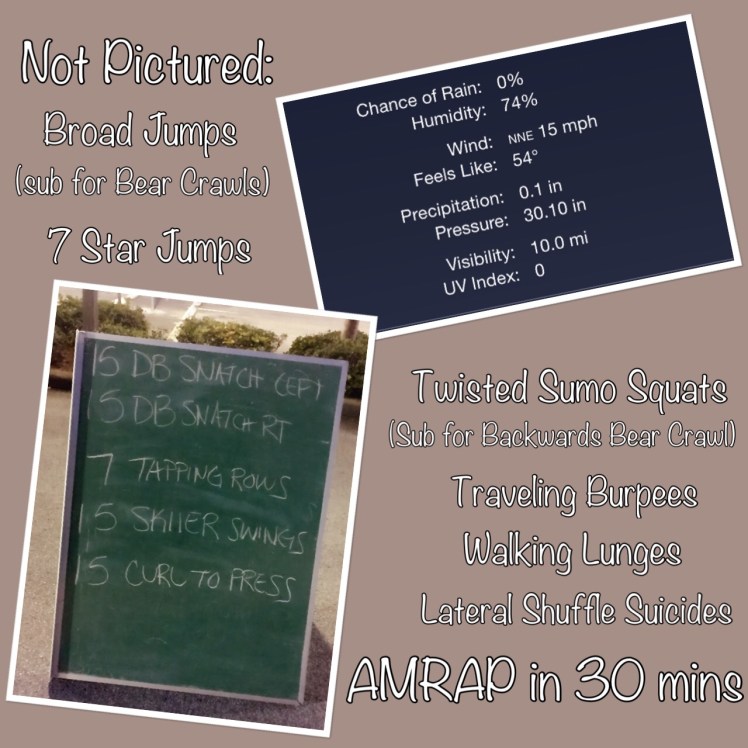 Not Pictured:
Broad Jumps
(sub for Bear Crawls)
7 Star Jumps
Chance of Rain: 0%
Humidity: 74%
Wind: NNE 15 mph
Feels Like: 54°
Precipitation: 0.1 in
Pressure: 30.10 in
Visibility: 10.0 mi
UV Index: 0
15 DB SNATCH LEFT
15 DB SNATCH RT
7 TAPPING ROWS
15 SKIIER SWINGS
15 CURL TO PRESS
Twisted Sumo Squats
(Sub for Backwards Bear Crawl)
Traveling Burpees
Walking Lunges
Lateral Shuffle Suicides
AMRAP in 30 mins